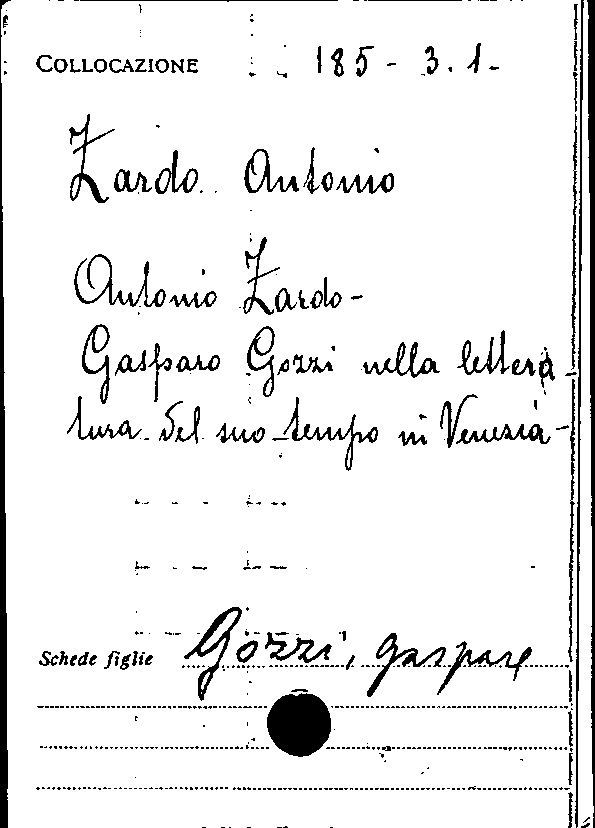 COLLOCAZIONE 185 - 3. 1 -
Zardo Antonio
Antonio Zardo -
Gasparo Gozzi nella lettera-
tura del suo tempo in Venezia -
Schede figlie Gozzi, gaspare